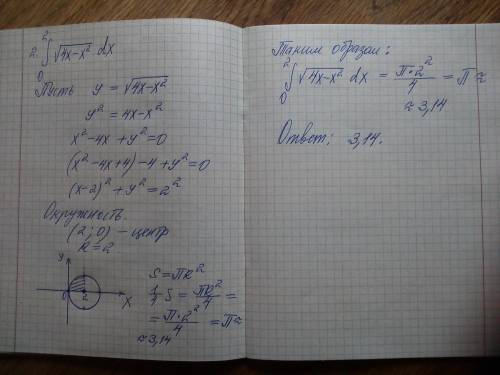 2. ∫₀² √(4x-x²) dx
Пусть y = √(4x-x²)
y² = 4x-x²
x²-4x+y²=0
(x²-4x+4)-4+y²=0
(x-2)²+y²=2²
Окружность.
(2; 0) – центр
R=2
y
0 2 x
S=ПR²
1/4 S = ПR²/4 =
= П·2²/4 = П≈
≈3,14
Таким образом:
∫₀² √(4x-x²) dx = П·2²/4 = П≈
≈3,14
Ответ: 3,14.